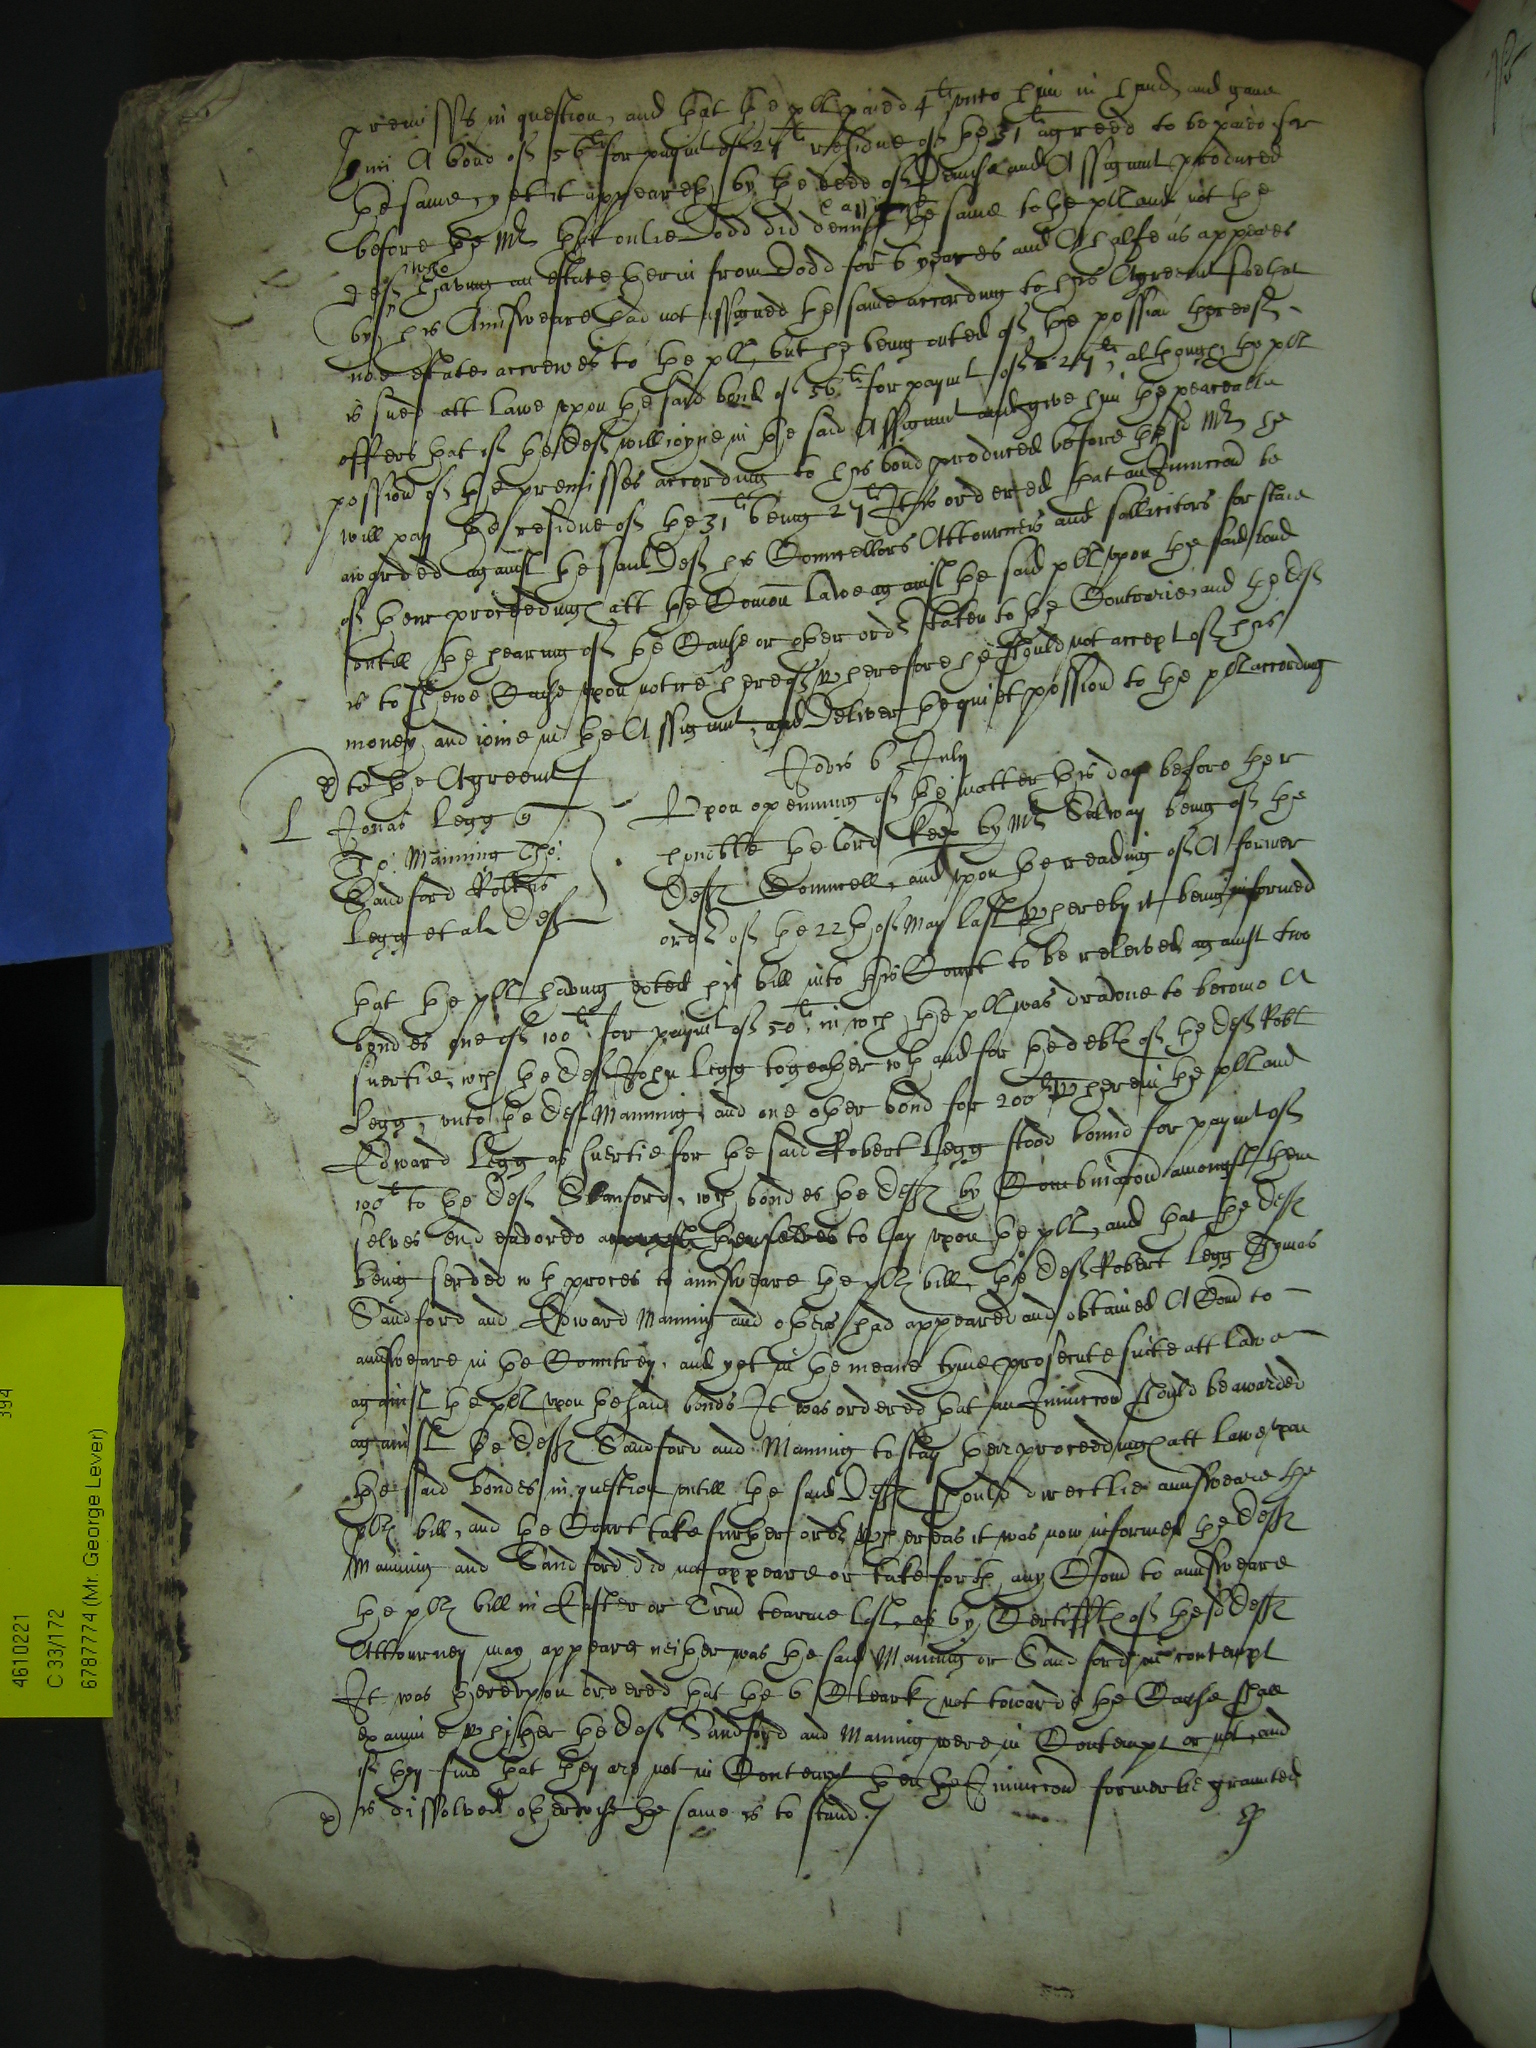 premisses in question, and that the pll paied 4li unto him in hand and gave
him A bond of 56li for paymt of 27li residue of the 31li agreed to be paied for
the same, yet it appeareth by the deed of Demise and Assignmt produced
before the Mr that onlie Dodd did demise the same to the pll and not the
deft who having an estate therin from Dodd for 6 yeares and A halfe as appeares
by his Answeare had not assigned the same according to his Agreemt soe that
noe estate accrewes to the pll, but he being outed of the possion thereof
is sued att Lawe upon the said bond of 56li for paymt of 27li, although the pll
offers that if the deft will ioyne in the said Assignmt and give him the peaceable
possion of the premisses according to his bond produced before the sd Mr he
will pay the residue of the 31li being 27li It is ordered that an Iniunccon be
awarded against the said Deft his Councellors Attourneis and sollicitors for staie
of their proceedings att the Comon Lawe against the said pll upon the said bond
untill the hearing of the Cause or other ordr taken to the Contrarie, and the deft
is to shewe Cause upon notice hereof wherefore he should not accept of his
money, and ioine in the Assignmt, and Deliver the quiet possion to the pll according
to the Agreemt
Jovis 6 July
L Jonas Legg q
Jo: Manning Tho:
Sandford Robtus
Legg et al Defts
Upon opening of the matter this day before the
honoble the lord keep by Mr Salway being of the
Defts Councell, and upon the reading of A former
ordr of the 22th of May last whereby it being informed
that the pll having exhted his bill into this Court to be releived against two
bondes one of 100li for paymt of 50li in wch the pll was drawne to become A
suertie, wch the deft John Legg togeather wth and for the debt of the deft Robt
Legg, unto the deft Manning, and one other bond for 200li Wherein the pll and
Edward Legg as suertie for the said Robert Legg stood bound for paymt of
100li to the deft Stanford, wch bondes the defts by Combinacon amongst them
selves endeavored amongst themselves to lay upon the pll, and that the defts
being served wth proces to aunsweare the plls bill, the deft Robert Legg Thomas
Sandford and Edward Manning and others had appeared and obtained A Comn to
aunsweare in the Countrey, and yet in the meane tyme prosecute suite att Lawe
against the pll upon the said bonds It was ordered that an Iniunccon should be awarded
against the defts Sandford and Manning to stay their proceedings att Lawe upon
the said bondes in question untill the said Defts should directlie aunsweare the
plls bill, and the Court take further ordr Whereas it was now informed the defts
Manning and Sandford did not appeare or take forth any Comn to aunsweare
the plls bill in Easter or Trin tearme last, as by Certiffts of the sd defts
Attourney may appeare neither was the said Manning or Sandford in contempt
It was thereupon ordered that the 6 Clearks not towards the Cause shall
examine whither the defts Sandford and Manning were in Contempt or not, and
if they find that they are not in Contempt then the Iniunccon formerlie graunted
is dissolved otherwise the same is to stand
4610221
C 33/172
6787774 (Mr. George Lever)
394